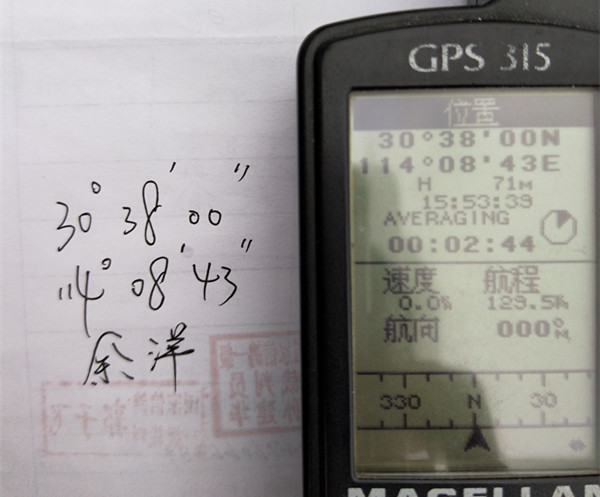 30°38'00"
114°08'43"
余洋
GPS 315
位置
30°38'00N
114°08'43E
H 71M
15:53:39
AVERAGING
00:02:44
速度 航程
0.0 129.5
航向 000°M
330 N 30
MAGELLAN